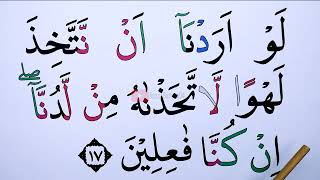 لَوْ اَرَدْنَاۤ اَنْ نَّتَّخِذَ
لَهْوًا لَّاتَّخَذْنٰهُ مِنْ لَّدُنَّاۤ ۖۗ
اِنْ كُنَّا فٰعِلِيْنَ ١٧